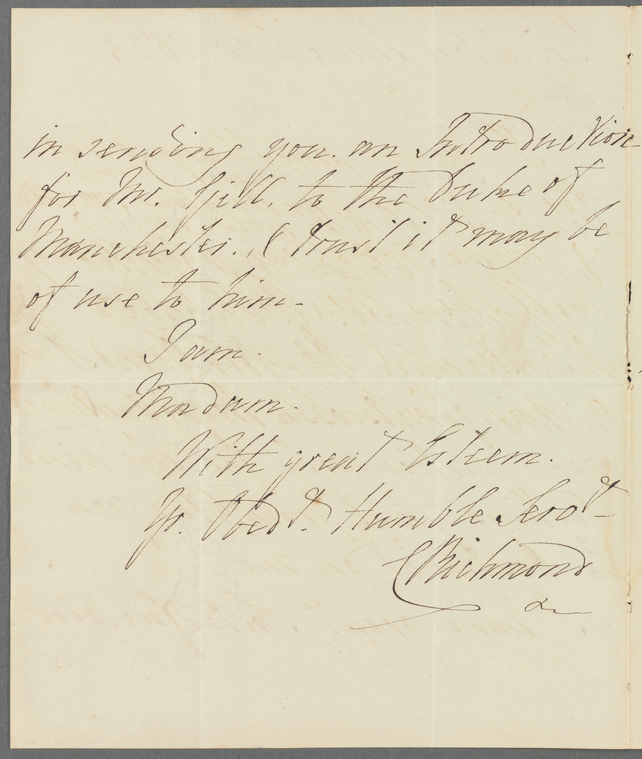 in sending you. an Introduction
for Mr. Gill. to the Duke of
Manchester. & trust it may be
of use to him -
I am.
Madam.
With great Esteem.
Yr. Obedt. Humble Servt
Richmond